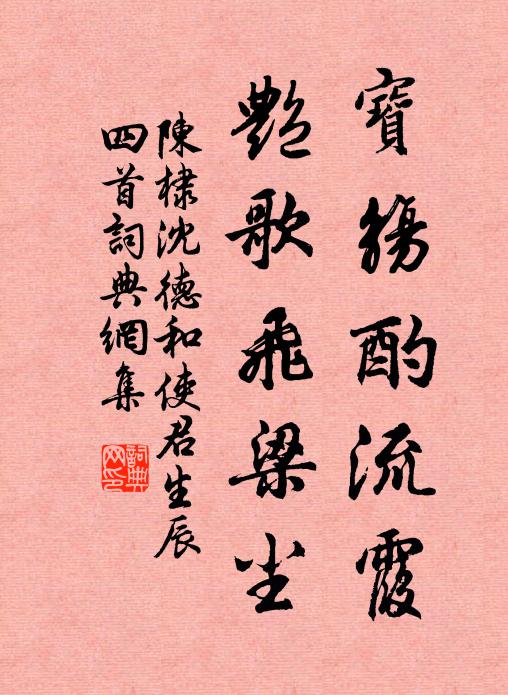 寶觴酌流霞
艷歌飛梁尘
陳棣沈德和使君生辰
四首詞典網集
詞典
网印